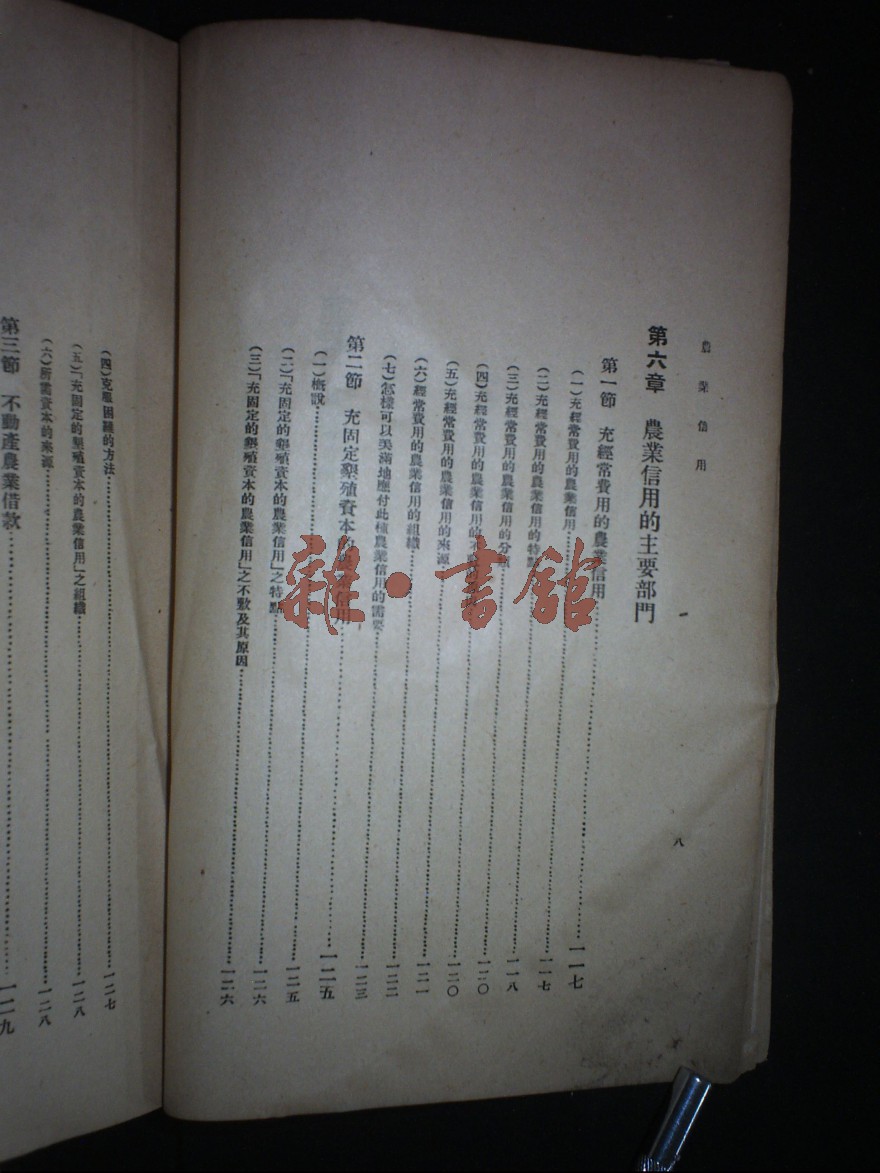 農業信用
八
第六章 農業信用的主要部門
第一節 充經常費用的農業信用……一一七
(一)充經常費用的農業信用……一一七
(二)充經常費用的農業信用的特點……一一八
(三)充經常費用的農業信用的分類……一二〇
(四)充經常費用的農業信用的不……一二〇
(五)充經常費用的農業信用的來源……一二一
(六)經常費用的農業信用的組織……一二二
(七)怎樣可以美滿地應付此種農業信用的需要……一二三
第二節 充固定墾殖資本的農業信用……一二五
(一)概說……一二五
(二)「充固定的墾殖資本的農業信用」之特點……一二六
(三)「充固定的墾殖資本的農業信用」之不敷及其原因……一二六
(四)克服困難的方法……一二七
(五)「充固定的墾殖資本的農業信用」之組織……一二八
(六)所需資本的來源……一二八
第三節 不動產農業借款……一二九
雜·書館